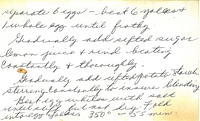 separate 6 eggs - beat 6 yolks &
1 whole egg until frothy
Gradually add sifted sugar
lemon juice & rind - beating
constantly & thoroughly.
Gradually add sifted potato starch
stirring constantly to insure blending
Beat egg whites with salt
until stiff but not dry. Fold
into egg yolks 350° - 55 min.